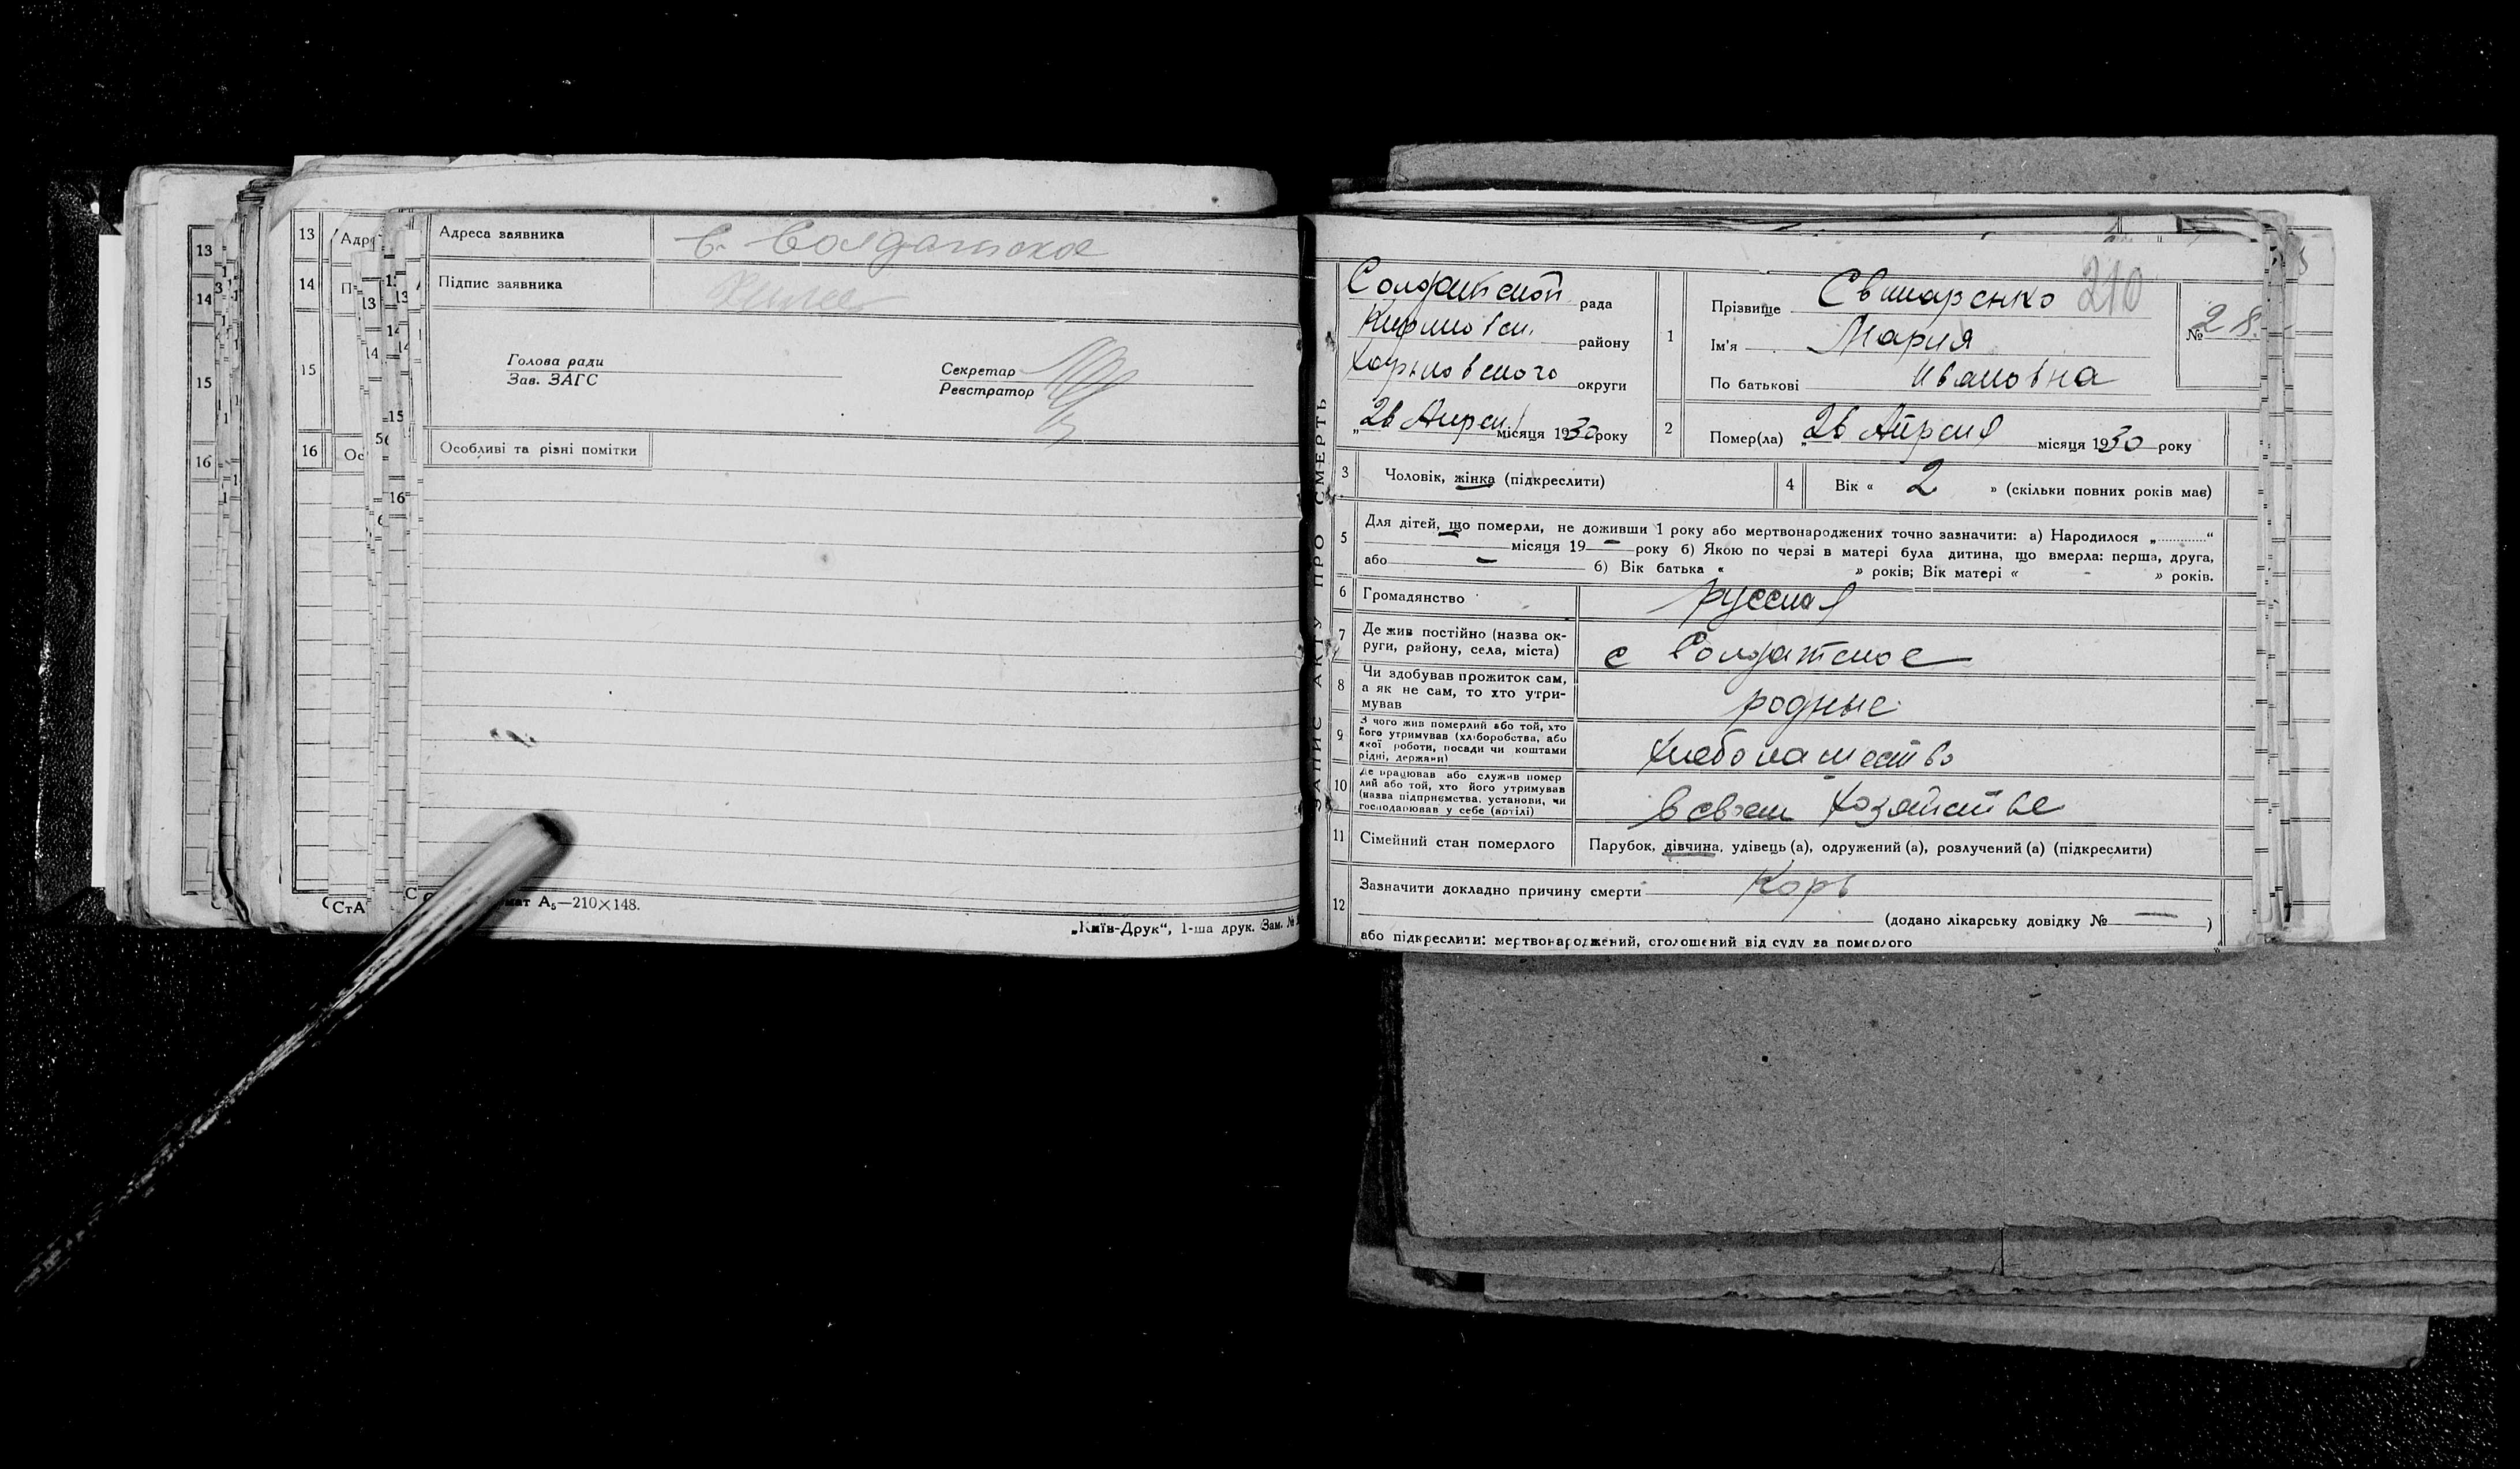 13
Адреса заявника
С. Солдатское
14
Підпис заявника
15
Голова ради
Зав. ЗАГС
Секретар
Реєстратор
16
Особливі та різні помітки
мат А5—210×148.
„Київ-Друк“, 1-ша друк. Зам. №
ЗАПИС АКТУ ПРО СМЕРТЬ
Солдатской рада
району
Харьковского округи
„26 Апреля місяця 1930 року
210
№ 28
1
Прізвище Свинаренко
Ім'я Мария
По батькові Ивановна
2
Помер(ла) „26 Апреля місяця 1930 року
3
Чоловік, жінка (підкреслити)
4
Вік « 2 » (скільки повних років мав)
5
Для дітей, що померли, не доживши 1 року або мертвонароджених точно зазначити: а) Народилося „............“
місяця 19 — року б) Якою по черзі в матері була дитина, що вмерла: перша, друга,
або — б) Вік батька « » років; Вік матері « - » років.
6
Громадянство
русская
7
Де жив постійно (назва ок-
руги, району, села, міста)
с Солдатское
8
Чи здобував прожиток сам,
а як не сам, то хто утри-
мував
родные
9
З чого жив померлий або той, хто
його утримував (хліборобства, або
якої роботи, посади чи коштами
рідні, держави)
хлебопашество
10
Де працював або служив помер
лий або той, хто його утримував
(назва підприємства, установи, чи
господарював у себе (артілі)
в своем хозяйстве
11
Сімейний стан померлого
Парубок, дівчина, удівець (а), одружений (а), розлучений (а) (підкреслити)
12
Зазначити докладно причину смерти Корь
(додано лікарську довідку № — )
або підкреслити: мертвонароджений, оголошений від суду за померлого